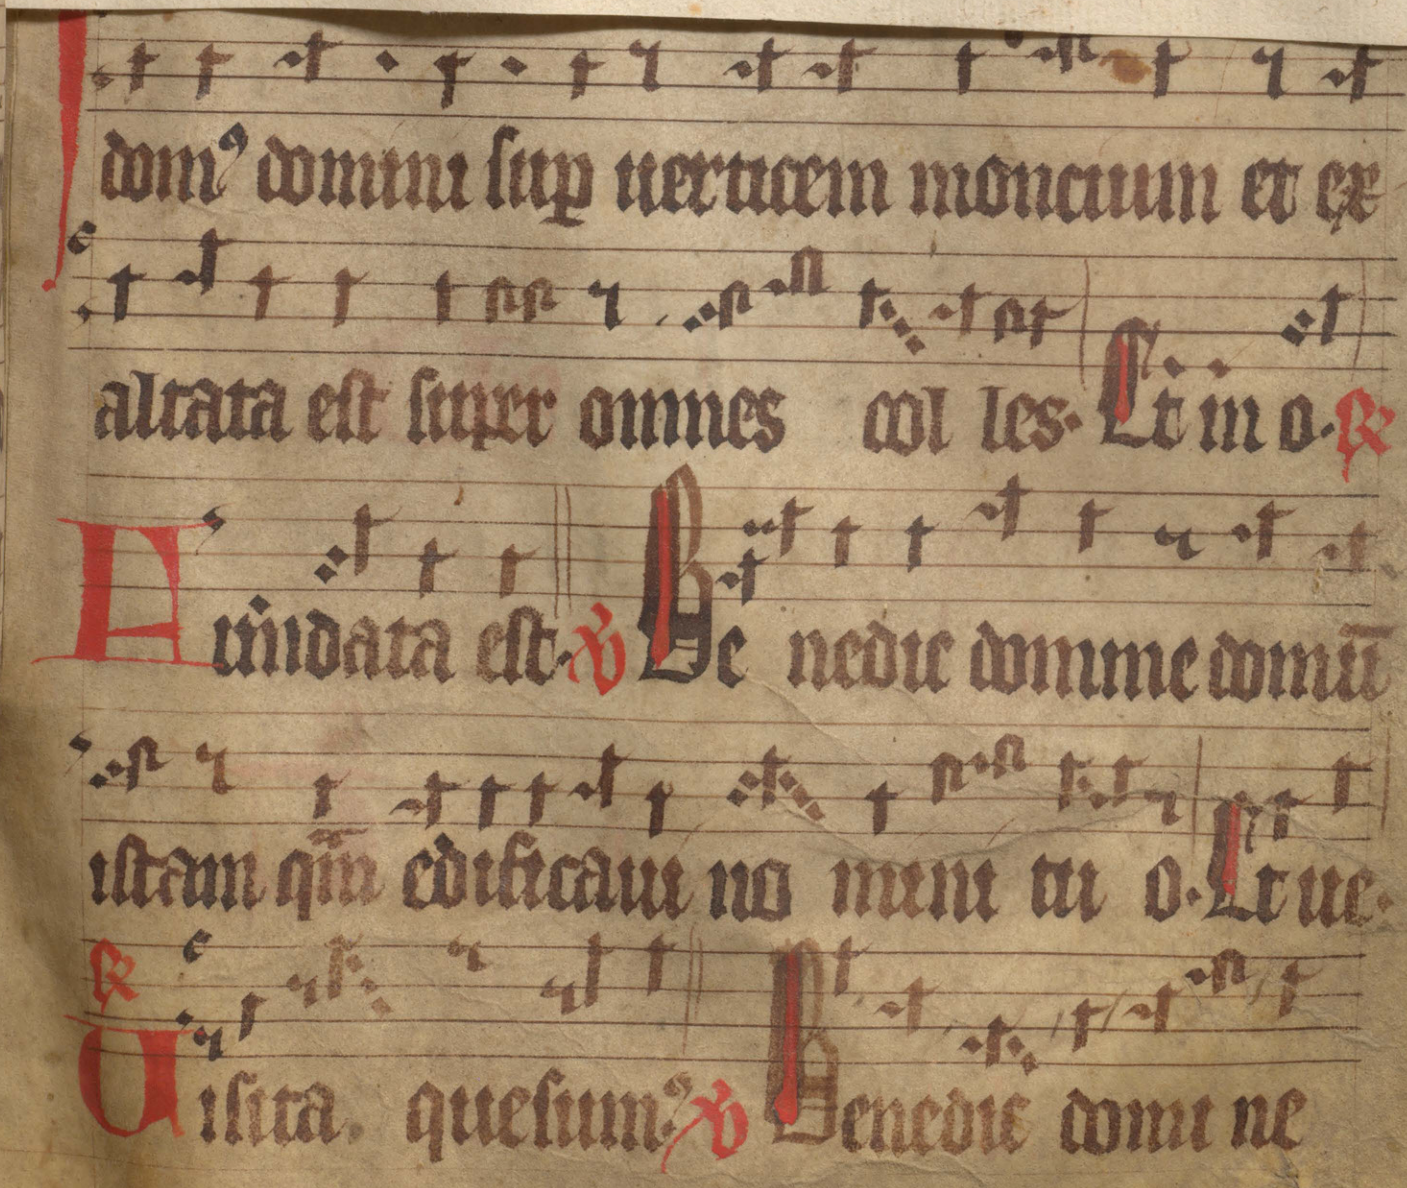 domꝰ domini suꝑ uerticem moncium et ex
altata est super omnes col les. Et in o. ℟
Fundata est. ℣ Be nedic domine domū
istam qm̄ edificaui no mini tu o. Et ue.
℟
Uisita quesumꝰ. ℣ Benedic domi ne